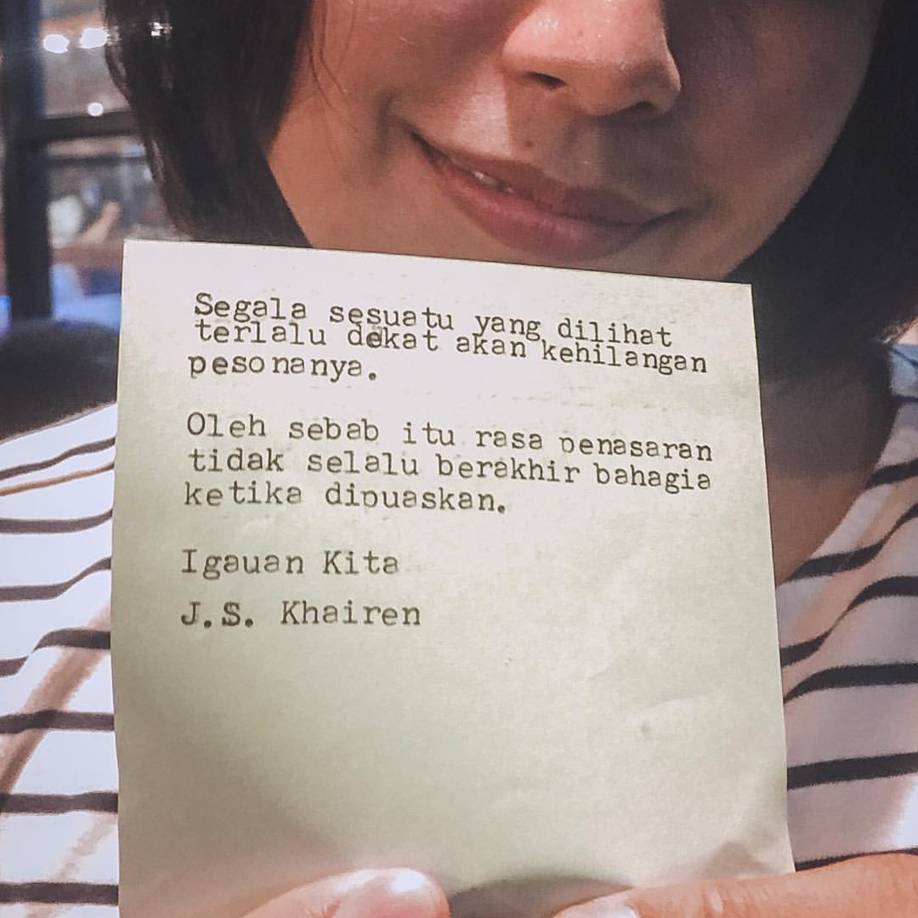 Segala sesuatu yang dilihat
terlalu dekat akan kehilangan
pesonanya.
Oleh sebab itu rasa penasaran
tidak selalu berakhir bahagia
ketika dipuaskan.
Igauan Kita
J.S. Khairen